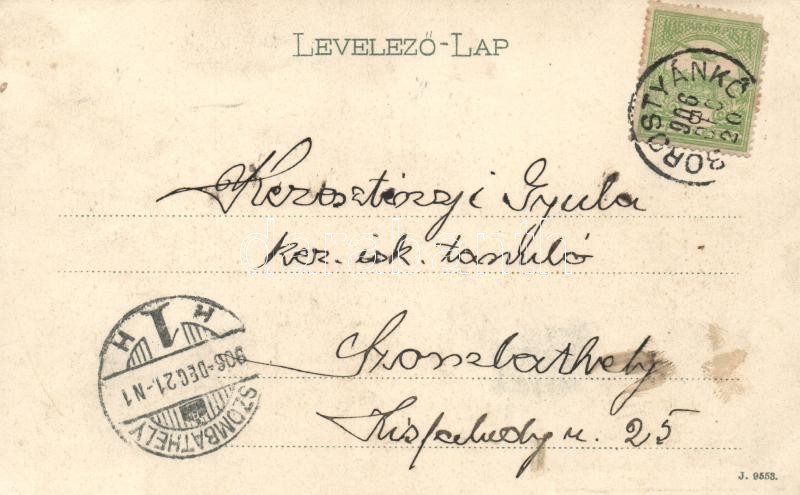 LEVELEZŐ-LAP
MAGYAR KIR. POSTA
BOROSTYÁNKŐ
906
DEC
20
Keresztinyi Gyula
ker. isk. tanuló
Szombathely
Kisfaludy u. 25
H 1 H
906-DEC.21-N1
SZOMBATHELY
J. 9553.